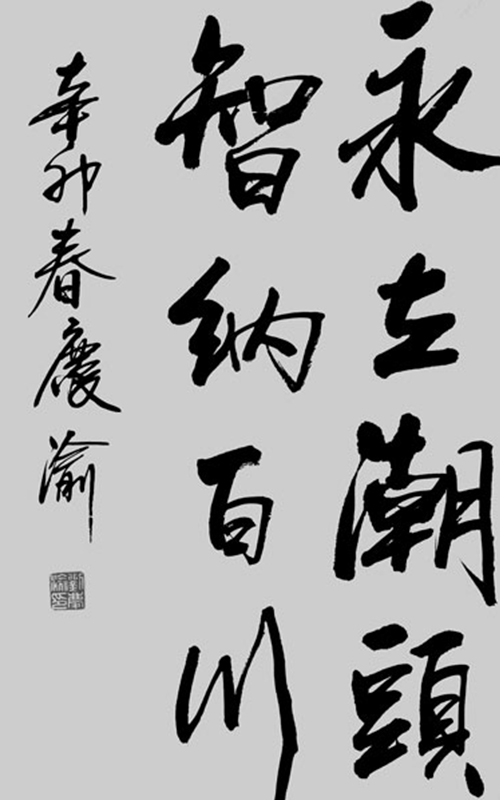 永立潮頭
智納百川
辛卯春慶渝